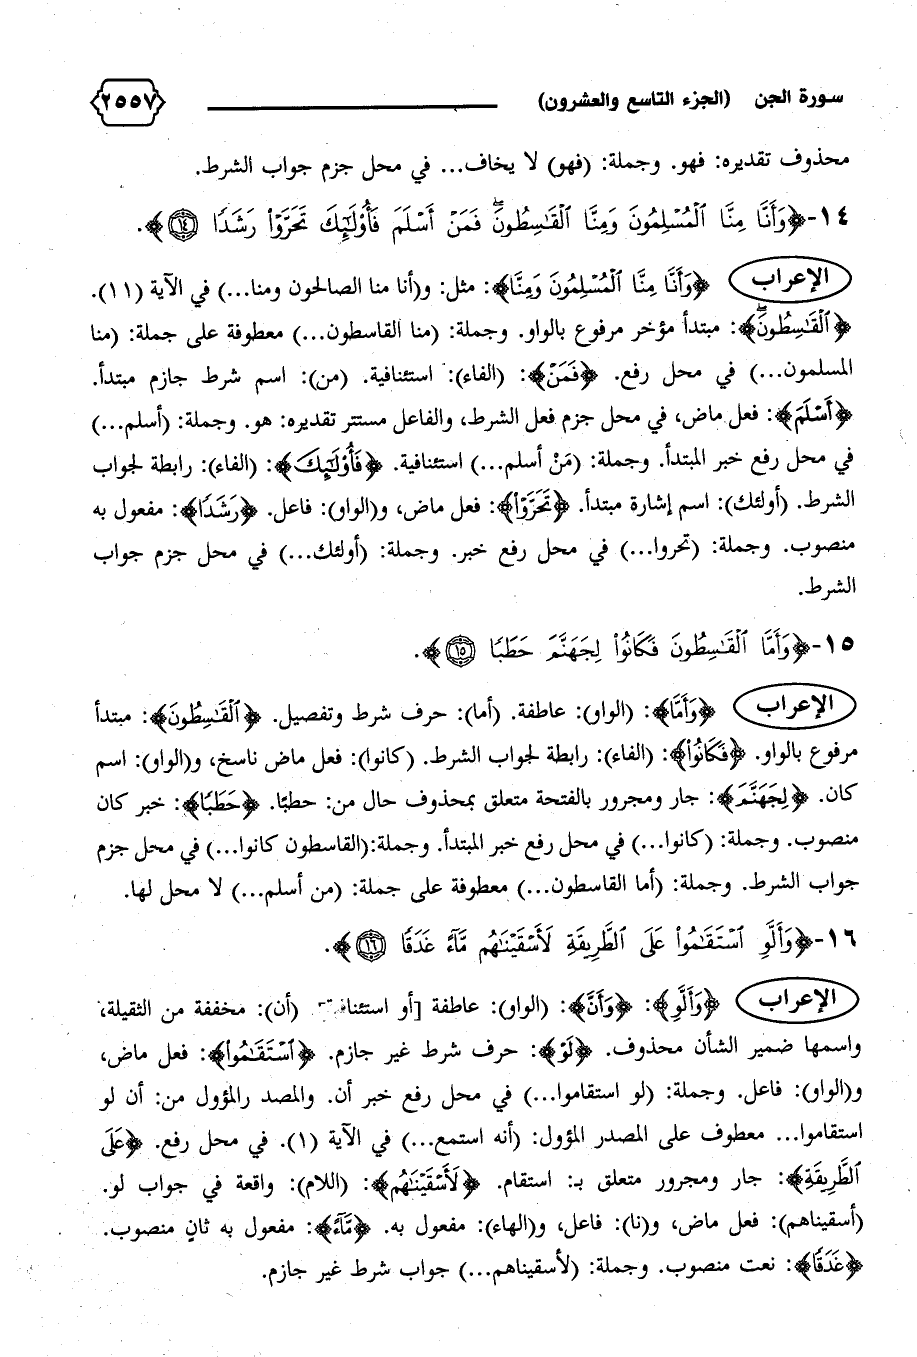 سورة الجن (الجزء التاسع والعشرون) ٢٥٥٧
محذوف تقديره: فهو. وجملة: (فهو) لا يخاف... في محل جزم جواب الشرط.
١٤-﴿وَأَنَّا مِنَّا ٱلْمُسْلِمُونَ وَمِنَّا ٱلْقَٰسِطُونَۖ فَمَنْ أَسْلَمَ فَأُو۟لَٰٓئِكَ تَحَرَّوْا۟ رَشَدًا ١٤﴾.
الإعراب ﴿وَأَنَّا مِنَّا ٱلْمُسْلِمُونَ وَمِنَّا﴾: مثل: و(أنا منا الصالحون ومنا...) في الآية (١١).
﴿ٱلْقَٰسِطُونَۖ﴾: مبتدأ مؤخر مرفوع بالواو. وجملة: (منا القاسطون...) معطوفة على جملة: (منا
المسلمون...) في محل رفع. ﴿فَمَنْ﴾: (الفاء): استئنافية. (من): اسم شرط جازم مبتدأ.
﴿أَسْلَمَ﴾: فعل ماض، في محل جزم فعل الشرط، والفاعل مستتر تقديره: هو. وجملة: (أسلم...)
في محل رفع خبر المبتدأ. وجملة: (مَنْ أسلم...) استئنافية. ﴿فَأُو۟لَٰٓئِكَ﴾: (الفاء): رابطة لجواب
الشرط. (أولئك): اسم إشارة مبتدأ. ﴿تَحَرَّوْا۟﴾: فعل ماض، و(الواو): فاعل. ﴿رَشَدًا﴾: مفعول به
منصوب. وجملة: (تحروا...) في محل رفع خبر. وجملة: (أولئك...) في محل جزم جواب
الشرط.
١٥-﴿وَأَمَّا ٱلْقَٰسِطُونَ فَكَانُوا۟ لِجَهَنَّمَ حَطَبًا ١٥﴾.
الإعراب ﴿وَأَمَّا﴾: (الواو): عاطفة. (أما): حرف شرط وتفصيل. ﴿ٱلْقَٰسِطُونَ﴾: مبتدأ
مرفوع بالواو. ﴿فَكَانُوا۟﴾: (الفاء): رابطة لجواب الشرط. (كانوا): فعل ماض ناسخ، و(الواو): اسم
كان. ﴿لِجَهَنَّمَ﴾: جار ومجرور بالفتحة متعلق بمحذوف حال من: حطبًا. ﴿حَطَبًا﴾: خبر كان
منصوب. وجملة: (كانوا...) في محل رفع خبر المبتدأ. وجملة:(القاسطون كانوا...) في محل جزم
جواب الشرط. وجملة: (أما القاسطون...) معطوفة على جملة: (من أسلم...) لا محل لها.
١٦-﴿وَأَلَّوِ ٱسْتَقَٰمُوا۟ عَلَى ٱلطَّرِيقَةِ لَأَسْقَيْنَٰهُم مَّآءً غَدَقًا ١٦﴾.
الإعراب ﴿وَأَلَّوِ﴾: ﴿وَأَنَّ﴾: (الواو): عاطفة [أو (أن): مخففة من الثقيلة،
واسمها ضمير الشأن محذوف. ﴿لَوْ﴾: حرف شرط غير جازم. ﴿ٱسْتَقَٰمُوا۟﴾: فعل ماض،
و(الواو): فاعل. وجملة: (لو استقاموا...) في محل رفع خبر أن. والمصد رالمؤول من: أن لو
استقاموا... معطوف على المصدر المؤول: (أنه استمع...) في الآية (١). في محل رفع. ﴿عَلَى
ٱلطَّرِيقَةِ﴾: جار ومجرور متعلق بـ: استقام. ﴿لَأَسْقَيْنَٰهُم﴾: (اللام): واقعة في جواب لو.
(أسقيناهم): فعل ماض، و(نا): فاعل، و(الهاء): مفعول به. ﴿مَّآءً﴾: مفعول به ثانٍ منصوب.
﴿غَدَقًا﴾: نعت منصوب. وجملة: (لأسقيناهم...) جواب شرط غير جازم.